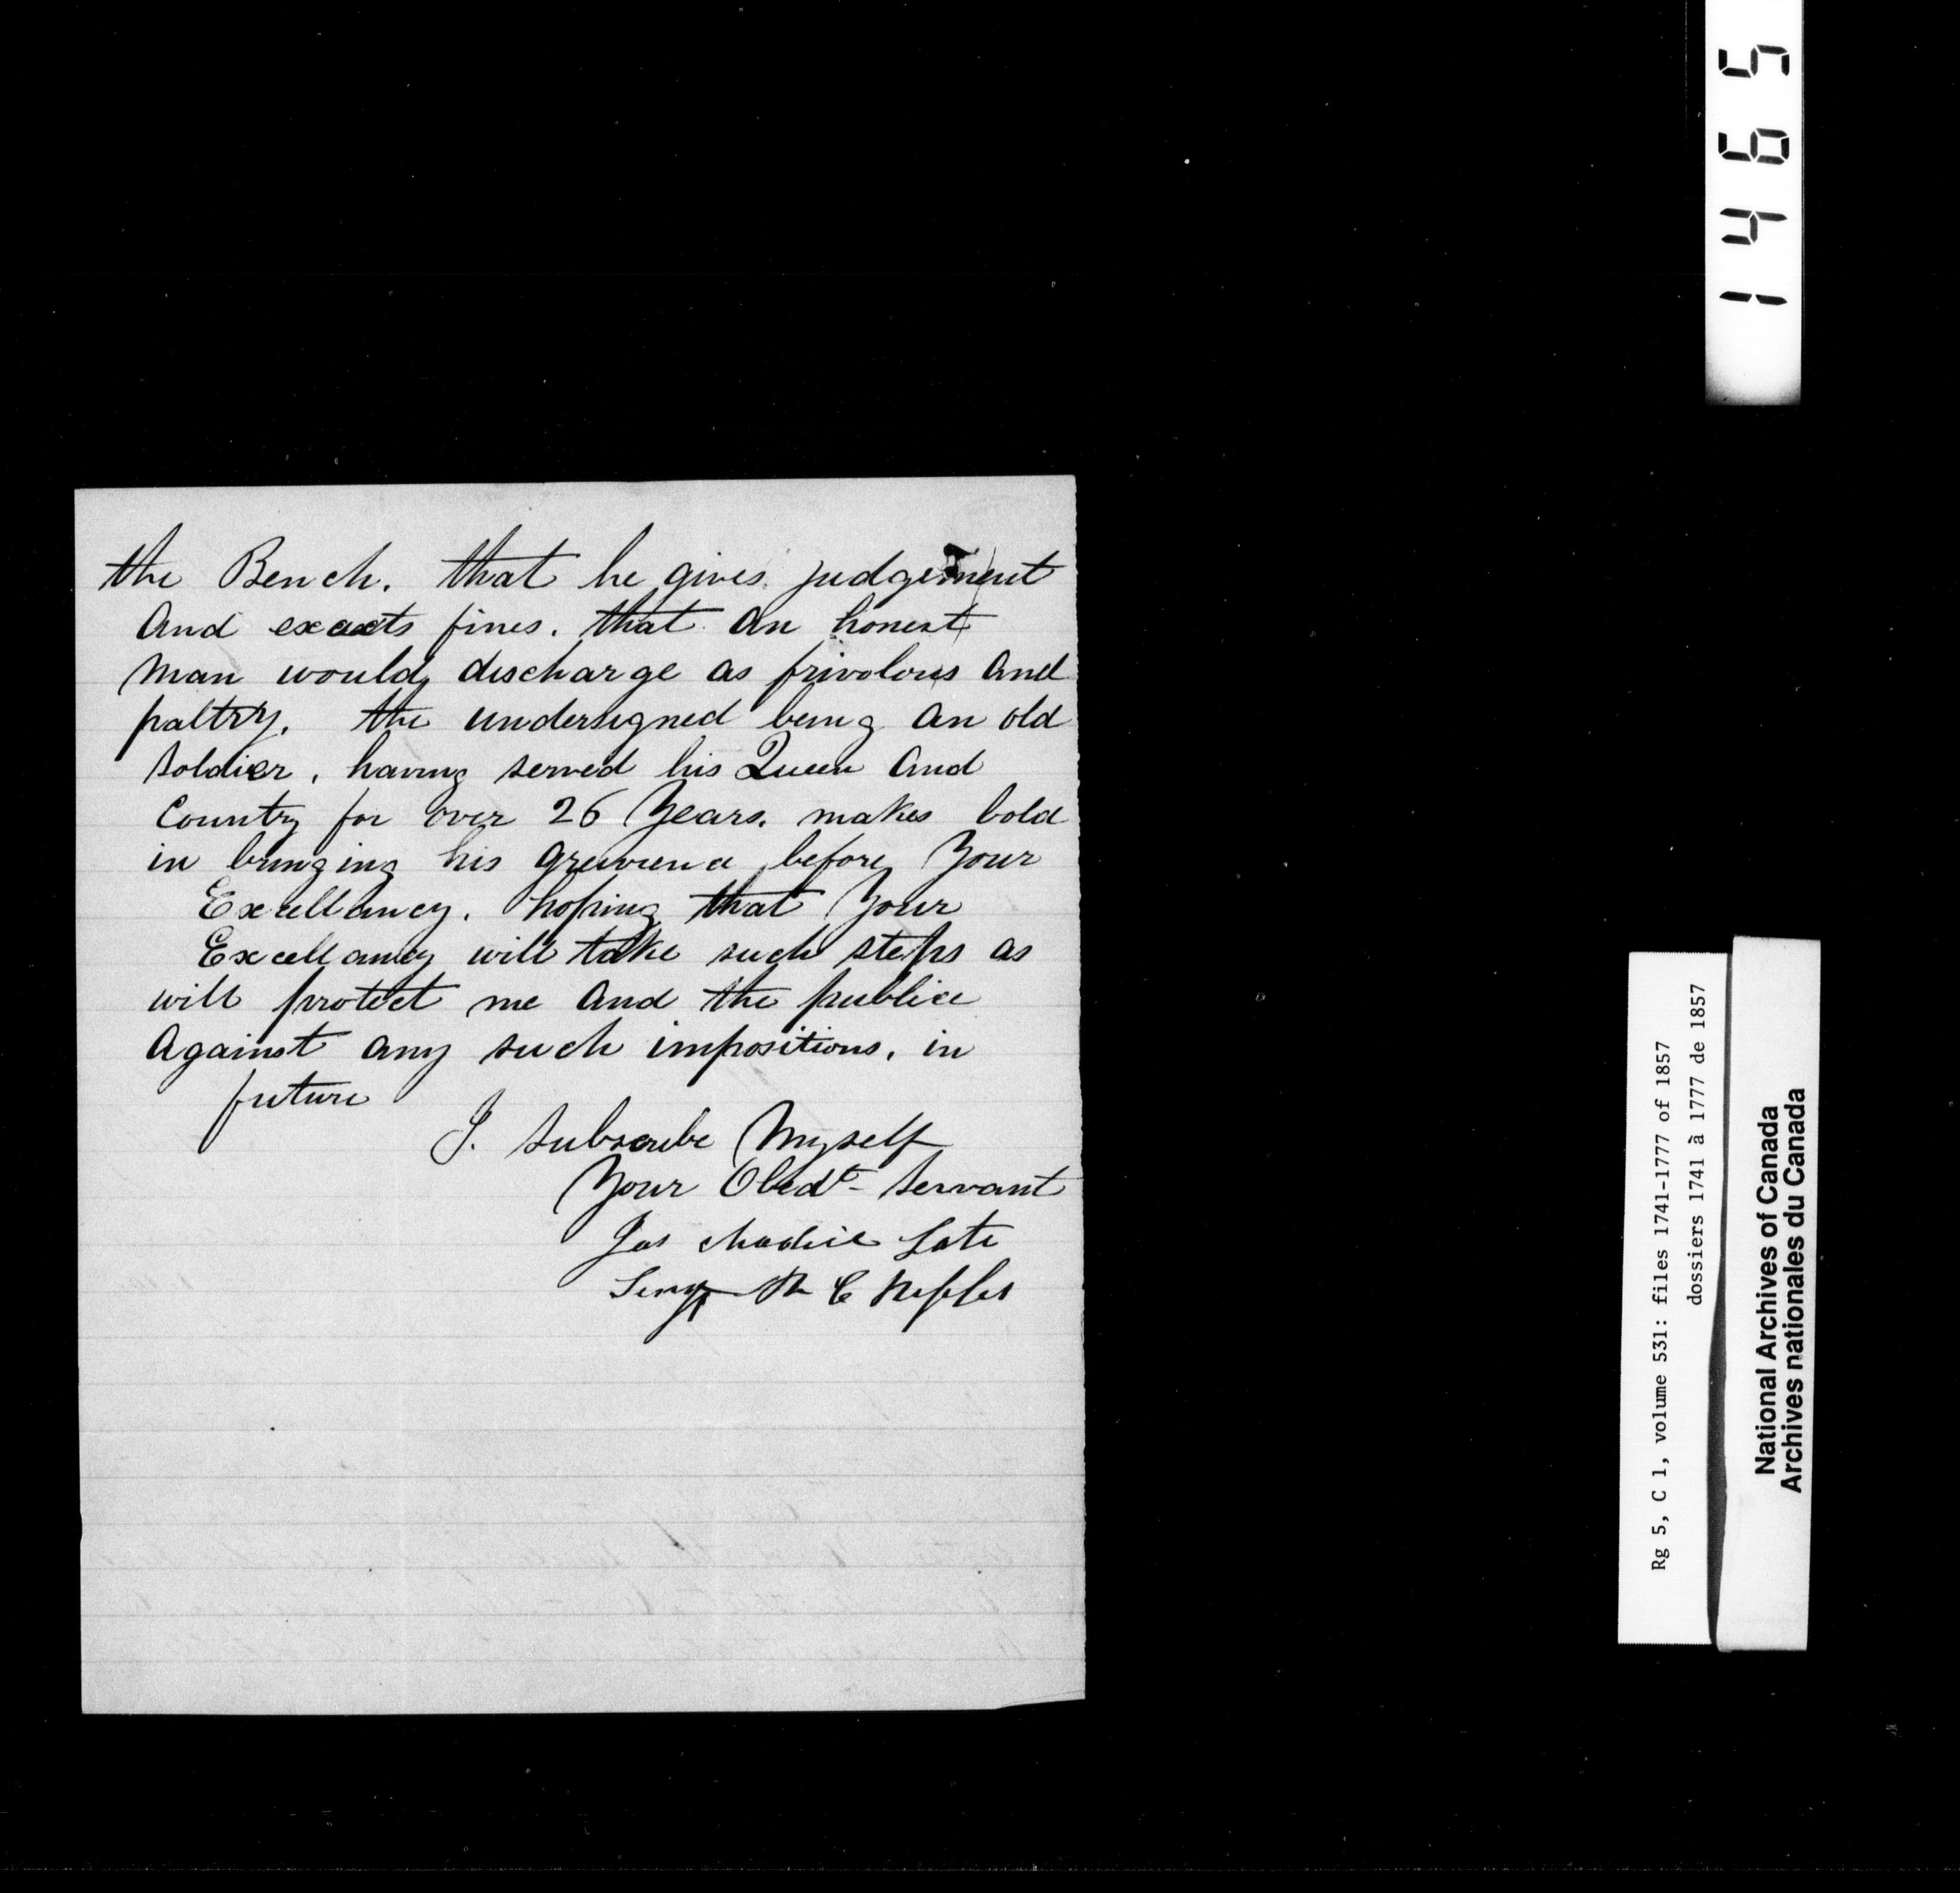 the Bench. that he gives judgement
And exacts fines. that an honest
Man would discharge as frivolous and
paltry. the undersigned being an old
Soldier, having served his Queen And
Country for over 26 Years. makes bold
in bringing his grievence before Your
Excellancy. hoping that Your
Excellancy will take such steps as
will protect me and the publice
Against any such impositions. in
future
I. Subscribe Myself
Your Obedt- Servant
Jas Late
R C Rifles
1465
Rg 5, C 1, volume 531: files 1741-1777 of 1857
dossiers 1741 à 1777 de 1857
National Archives of Canada
Archives nationales du Canada